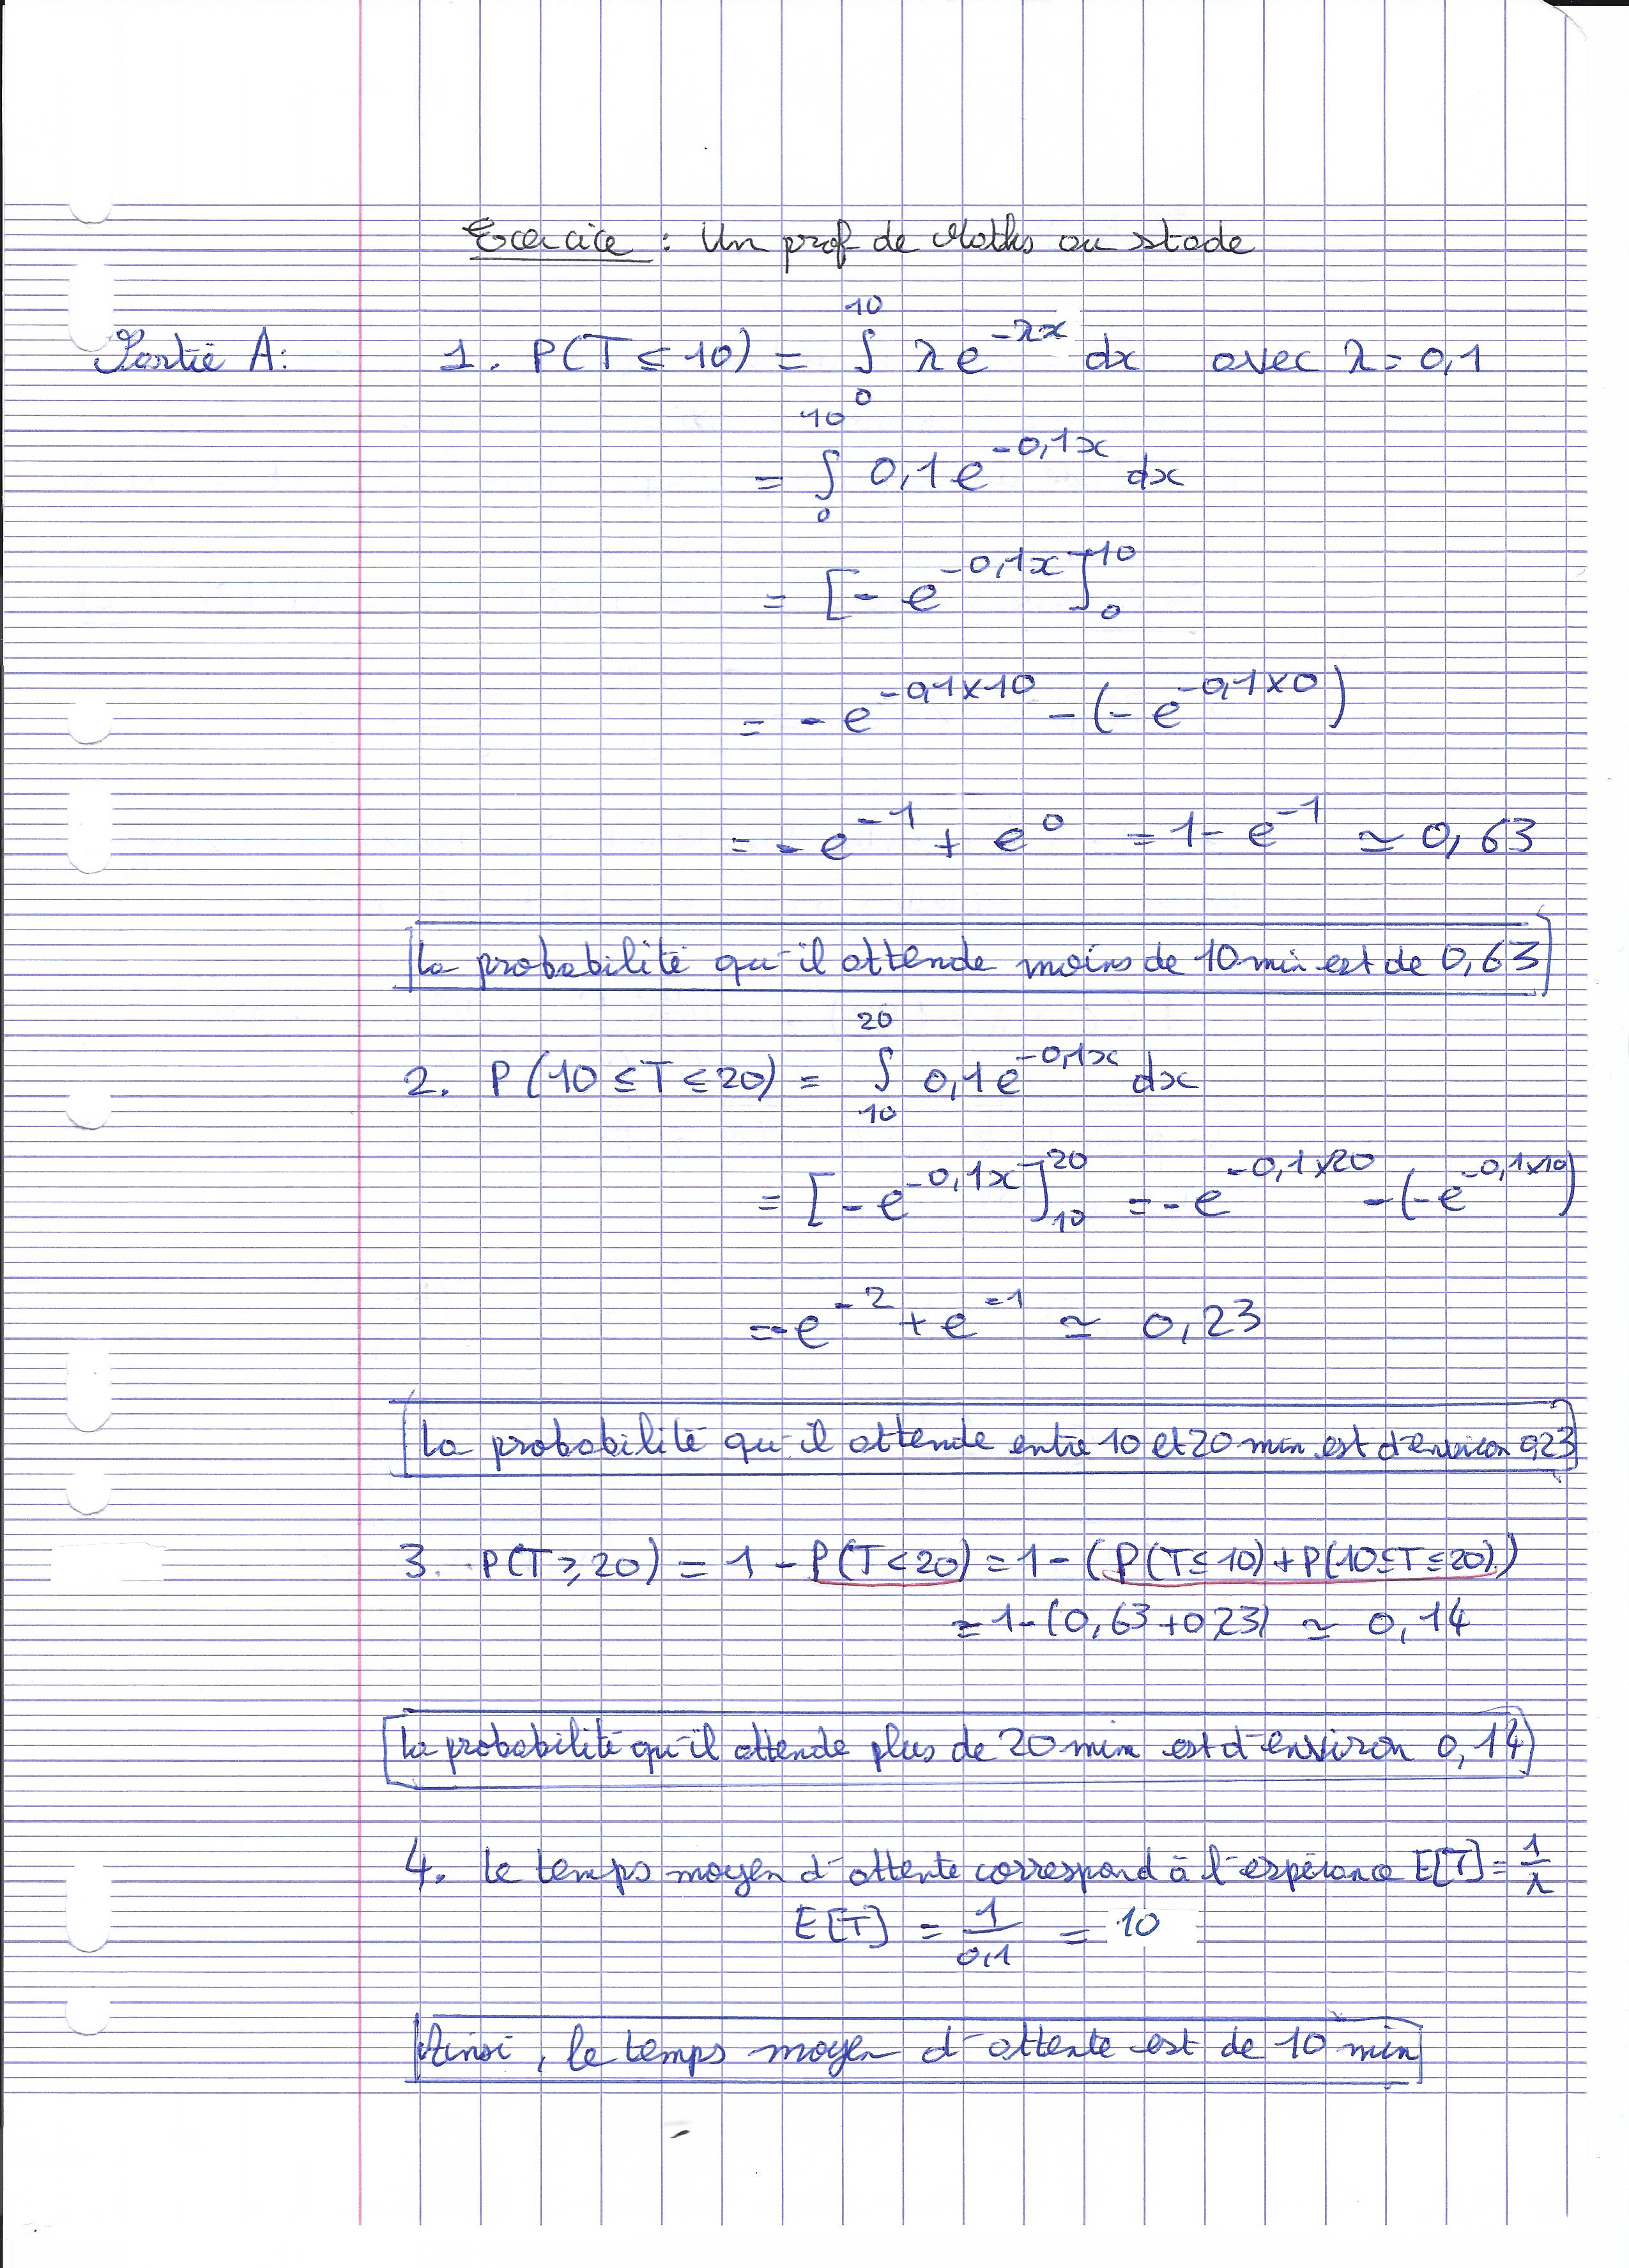 Exercice : Un prof de Maths au stade
Partie A: 1. P(T ≤ 10) = ∫₀¹⁰ λe^{-λx} dx avec λ = 0,1
= ∫₀¹⁰ 0,1e^{-0,1x} dx
= [-e^{-0,1x}]₀¹⁰
= -e^{-0,1×10} - (-e^{-0,1×0})
= -e^{-1} + e^{0} = 1 - e^{-1} ≃ 0,63
La probabilité qu'il attende moins de 10 min est de 0,63
2. P(10 ≤ T ≤ 20) = ∫₁₀²⁰ 0,1e^{-0,1x} dx
= [-e^{-0,1x}]₁₀²⁰ = -e^{-0,1×20} - (-e^{-0,1×10})
= -e^{-2} + e^{-1} ≃ 0,23
La probabilité qu'il attende entre 10 et 20 min est d'environ 0,23
3. P(T ≥ 20) = 1 - P(T < 20) = 1 - (P(T ≤ 10) + P(10 ≤ T ≤ 20))
= 1 - (0,63 + 0,23) ≃ 0,14
La probabilité qu'il attende plus de 20 min est d'environ 0,14
4. Le temps moyen d'attente correspond à l'espérance E[T] = 1/λ
E[T] = 1/0,1 = 10
Ainsi, le temps moyen d'attente est de 10 min